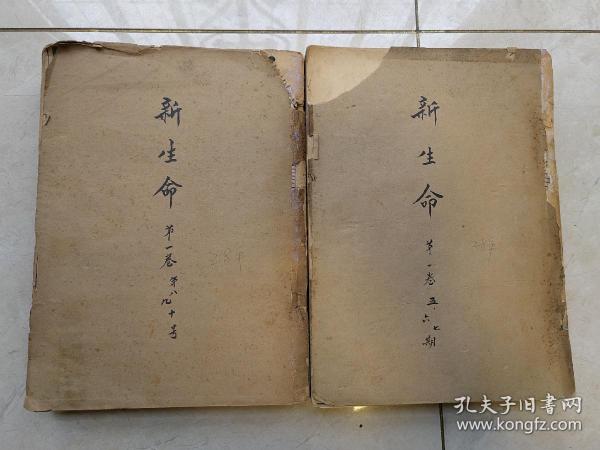 新生命
第一卷 第八九十号
28年
新生命
第一卷 五、六、七期
28年
孔夫子旧书网